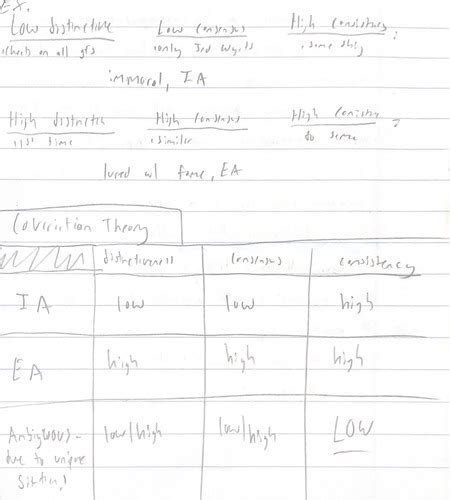 EX.
Low distinctive Low consensus High consistency :
cheats on all gfs only 3rd · same thing
immoral, IA
High distinctive High consensus High consistncy =
1st time · similar do same
lured w/ fame, EA
Covariation Theory
distinctiveness consensus consistency
IA low low high
EA high high high
Ambiguous - low/high low/high LOW
due to unique